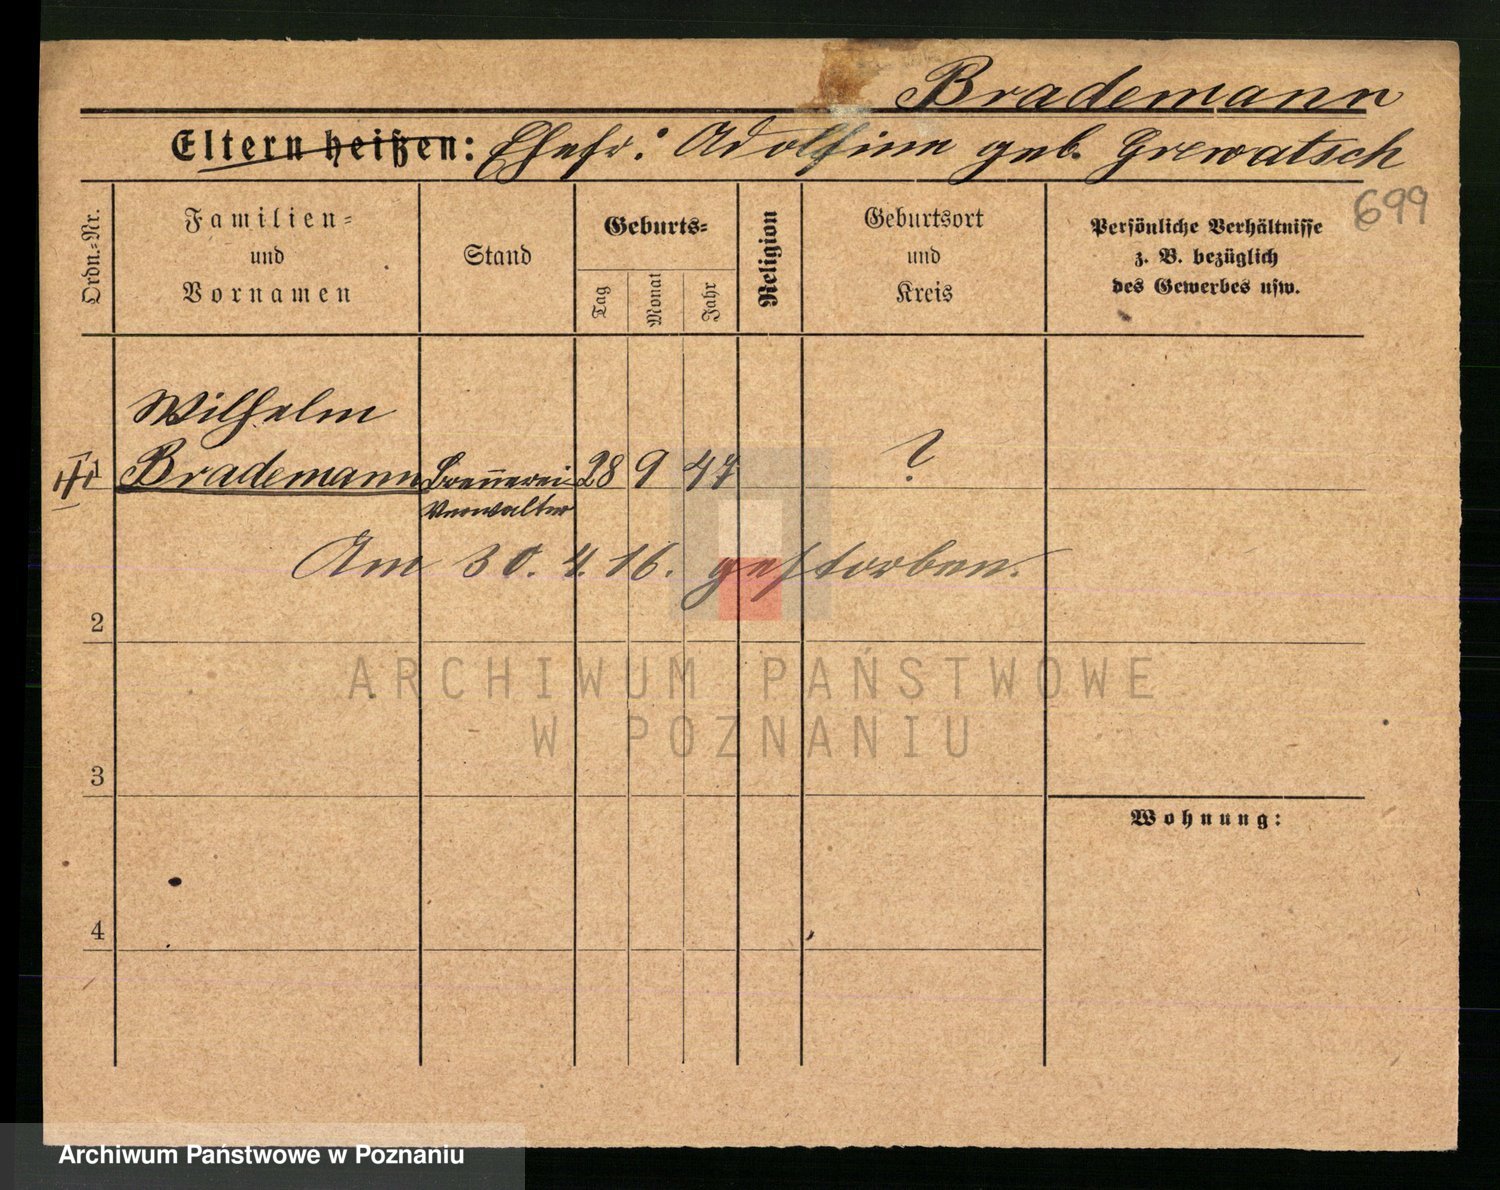 Brademann
Eltern heißen: Ehefr: Adolfine geb. Grewatsch
699
Ordn.-Nr.
Familien- und Vornamen
Stand
Geburts-
Tag
Monat
Jahr
Religion
Geburtsort und Kreis
Persönliche Verhältnisse
z. B. bezüglich
des Gewerbes usw.
Wilhelm
1 Brademann Brennerei- 28 9 47 ?
Verwalter
Am 30. 4. 16. gestorben.
2
ARCHIWUM PAŃSTWOWE
W POZNANIU
3
Wohnung:
4
Archiwum Państwowe w Poznaniu